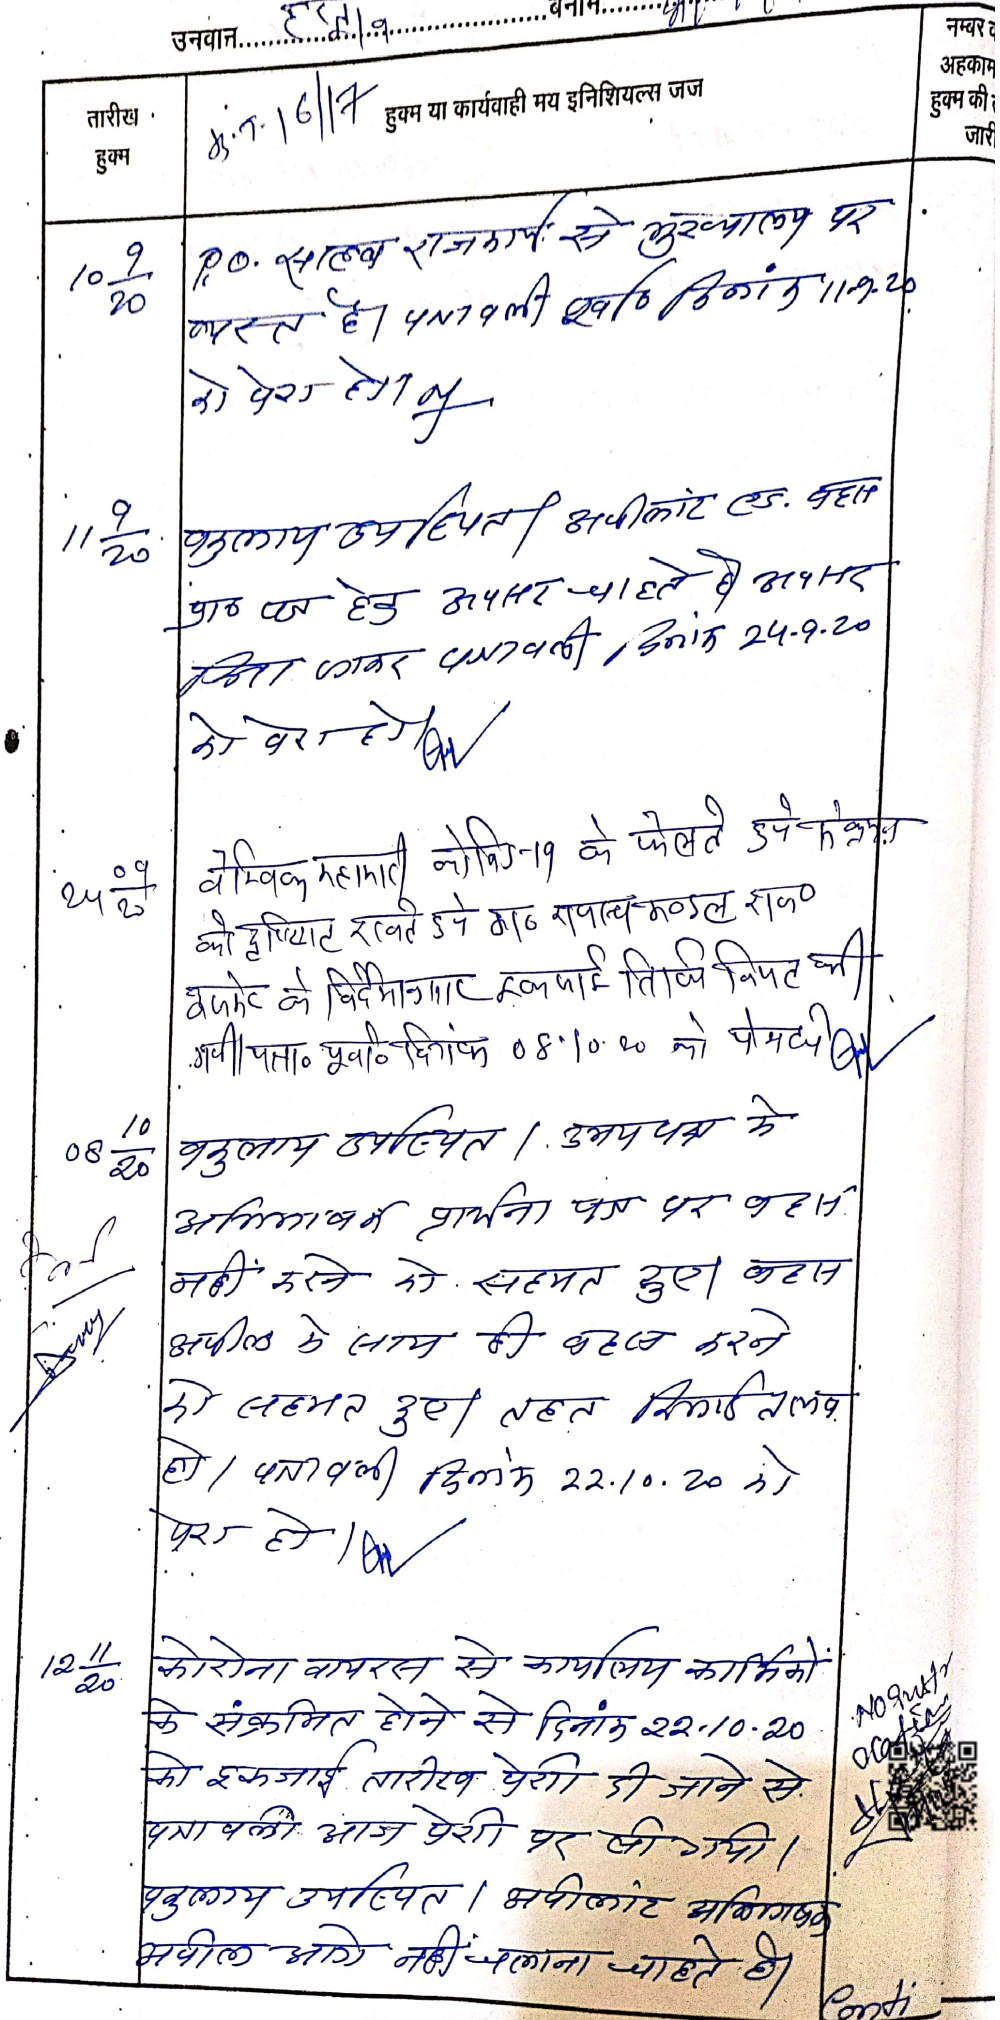 उनवान
बनाम
तारीख
हुक्म
हुक्म या कार्यवाही मय इनिशियल्स जज
नम्बर
अहकाम
हुक्म की
जारी
16/17
10 9/20
P.O. साहब राजकार्य से मुख्यालय पर
व्यस्त है। पत्रावली पूर्वा० दिनांक 11-9-20
को पेश हो।
11 9/20
वकुलाय उपस्थित। अपीलांट एड. बहस
प्रा० पत्र हेतु अवसर चाहते है अवसर
दिया जाकर पत्रावली दिनांक 24-9-20
को पेश हो।
24 09/20
वैश्विक महामारी कोविड-19 के फेलते हुये संक्रमण
को दृष्टिगत रखते हुये मा० राजस्व मण्डल राज०
अजमेर के निर्देशानुसार इकजाई तिथि नियत की
गयी। पत्रा० पूर्वा० दिनांक 08.10.20 को पेश हो
08 10/20
वकुलाय उपस्थित। उभयपक्ष के
अभिभाषक प्रार्थना पत्र पर बहस
नहीं करने को सहमत हुए। बहस
अपील के साथ ही बहस करने
को सहमत हुए। तहत रिकार्ड तलब
हो। पत्रावली दिनांक 22.10.20 को
पेश हो।
12 11/20
कोरोना वायरस से कार्यालय कार्मिकों
के संक्रमित होने से दिनांक 22.10.20
को इकजाई तारीख पेशी दी जाने से
पत्रावली आज पेशी पर ली गयी।
वकुलाय उपस्थित। अपीलांट अभिभाषक
अपील आगे नहीं चलाना चाहते है।
Conti